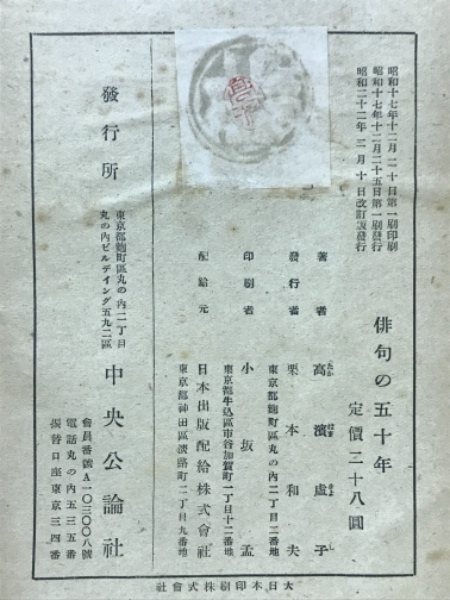 昭和十七年十二月二十日第一刷印刷
昭和十七年十二月二十五日第一刷發行
昭和二十二年三月十日改訂版發行
俳句の五十年
定價三十八圓
著者 高濱虚子
たか はま きよ し
發行者 栗本和夫
東京都麹町區丸の内二丁目二番地
印刷者 小坂孟
東京都牛込區市谷加賀町一丁目十二番地
配給元 日本出版配給株式會社
東京都神田區淡路町二丁目九番地
發行所 中央公論社
東京都麹町區丸の内二丁目
丸の内ビルデイング五九二區
會員番號A一〇三〇〇八號
電話丸の内五三五番
振替口座東京三四番
大日本印刷株式會社